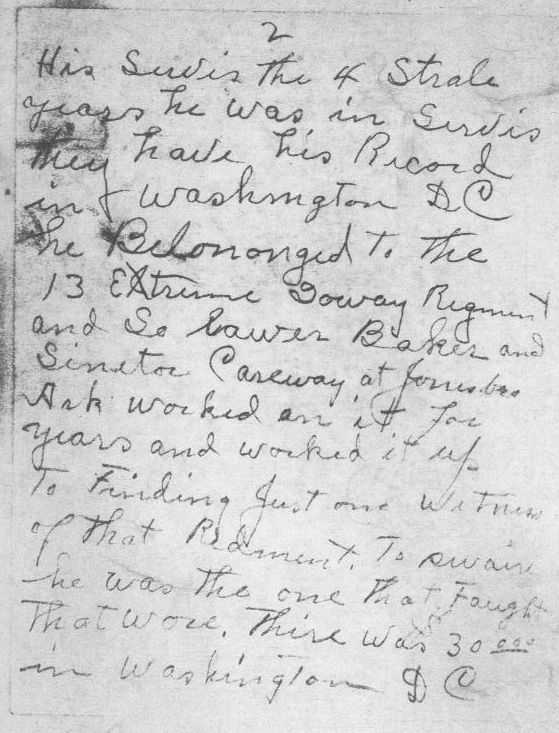 2
His Servis the 4 Strate
years he was in Servis
they have his Record
in Washington DC
he Belononged to the
13 Extreme Ioway Regment
and So Lawer Baker and
Sinetor Careway at Jonesboo
Ark worked on it for
years and worked it up
To Finding Just one Witness
of that Redment. To swair
he was the one that Faught
That Wore. There was 30 000
in Washington DC